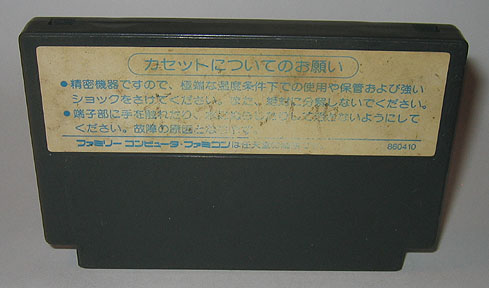 カセットについてのお願い
●精密機器ですので、極端な温度条件下での使用や保管および強い
ショックをさけてください。また、絶対に分解しないでください。
●端子部に手を触れたり、ないようにして
ください。故障の原因と
ファミリーコンピュータ・ファミコンは任天堂
860410